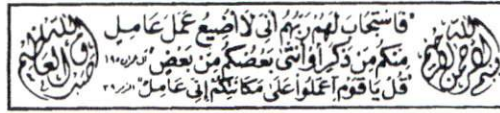 بسم الله الرحمن الرحيم
"فاستجاب لهم ربهم أني لا أضيع عمل عامل
منكم من ذكر أو أنثى بعضكم من بعض" آل عمران ١٩٥
"قل يا قوم اعملوا على مكانتكم إني عامل" الزمر ٣٩
صدق الله العظيم